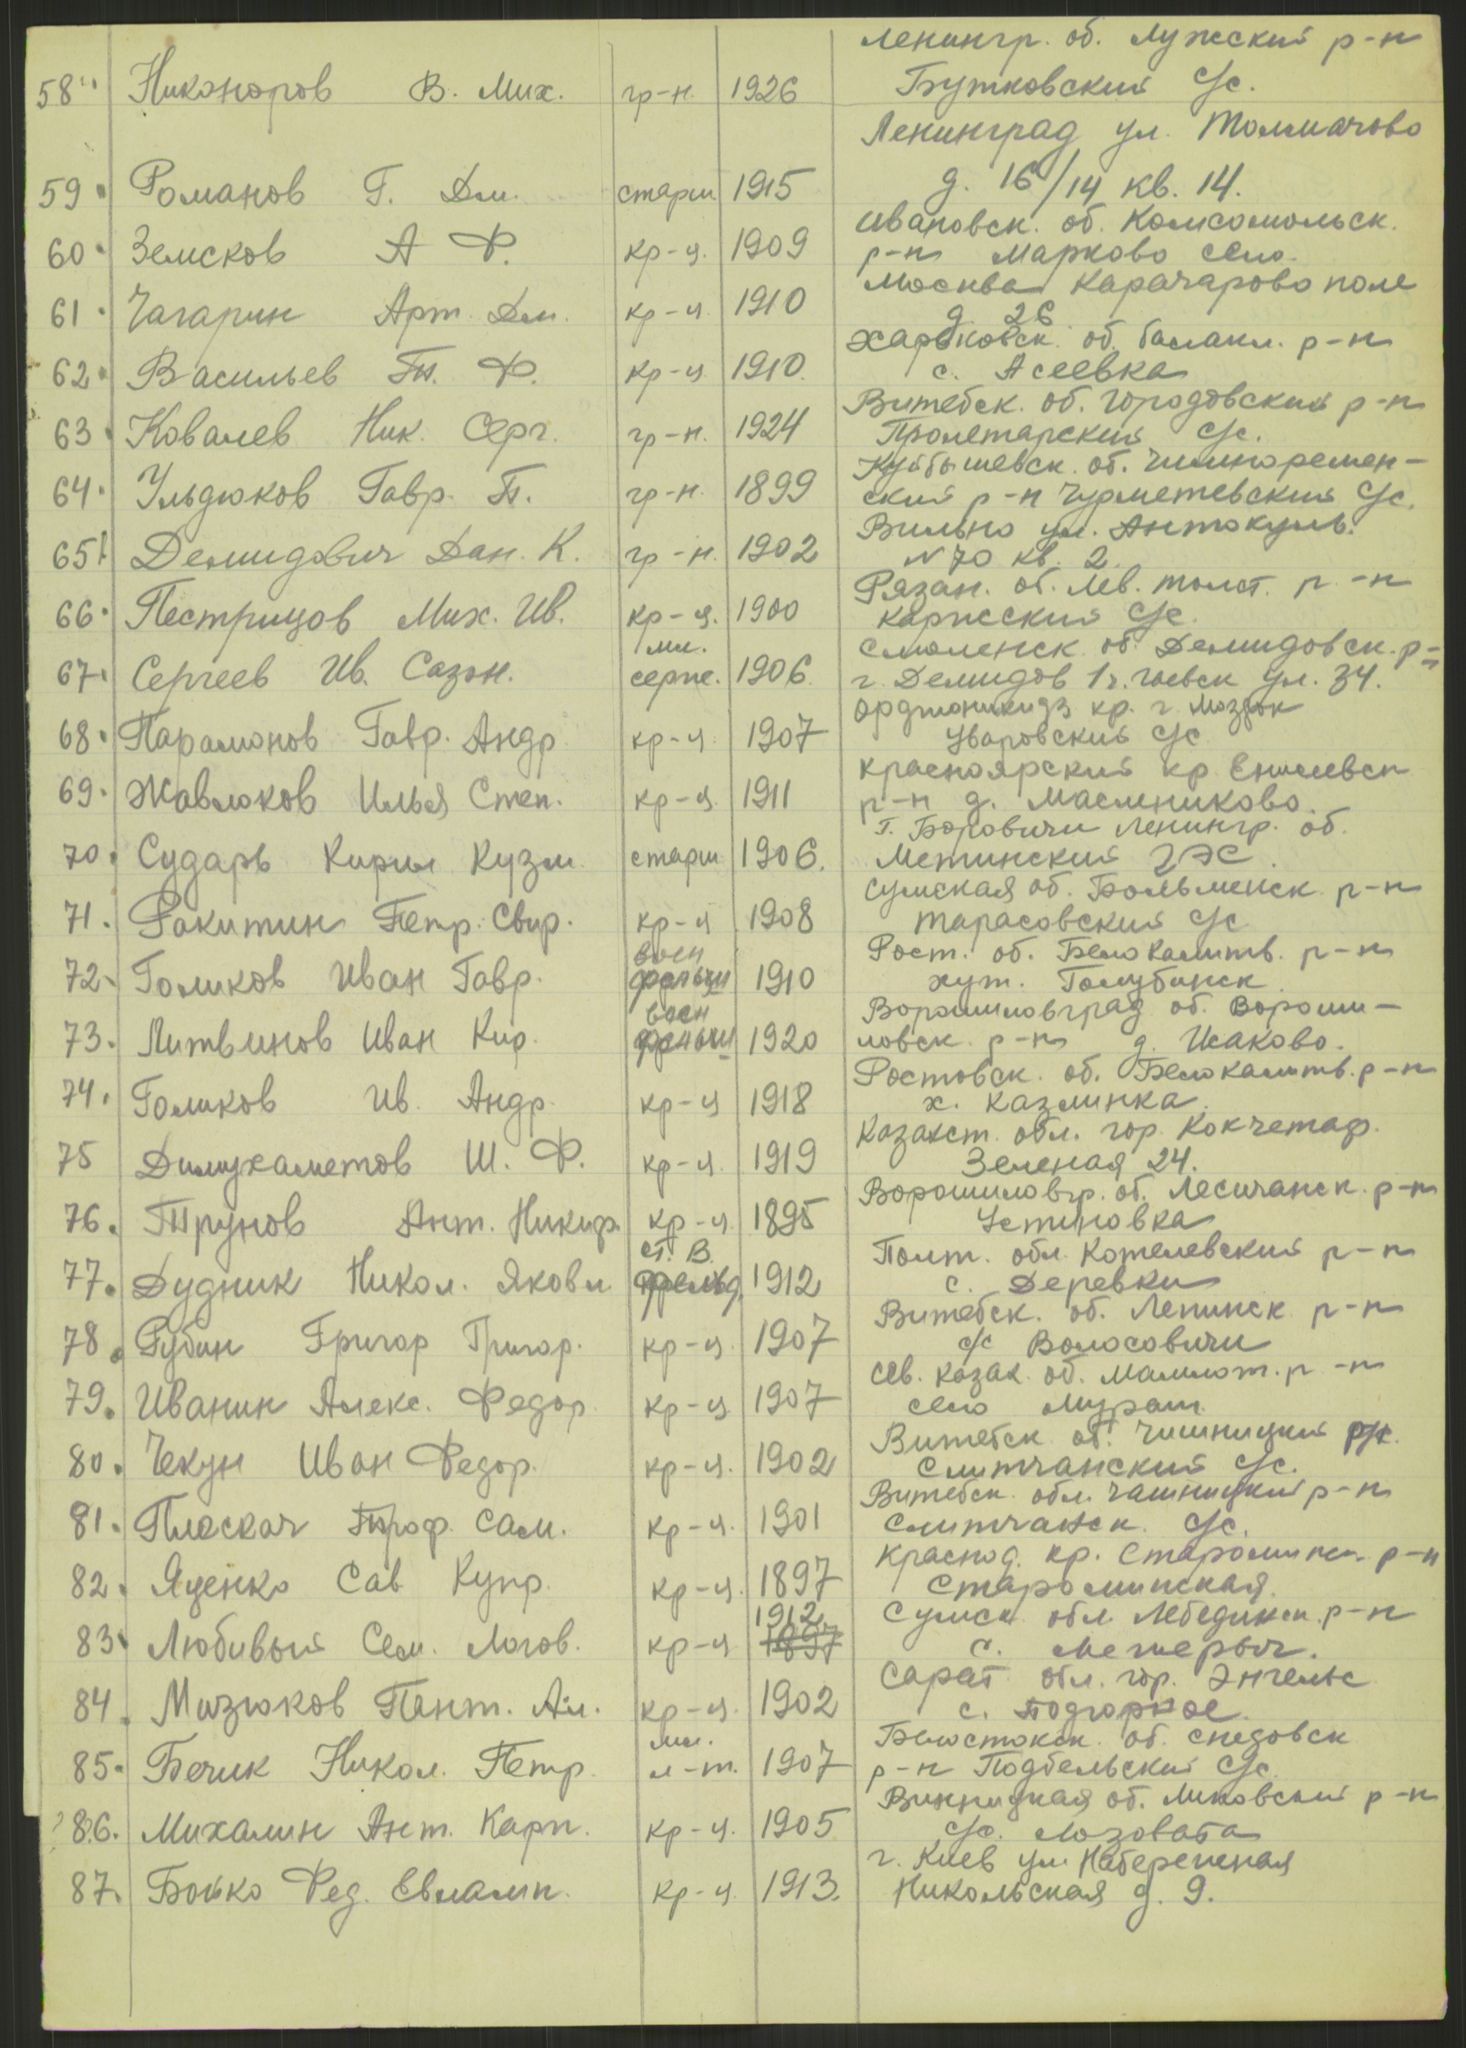 Ленингр. об. Лужский р-н
58 Никоноров В. Мих. гр-н. 1926 Бутковский с/с.
Ленинград ул. Толмачово
59. Романов Г. Дм. старш 1915 д. 16/14 кв. 14.
Ивановск. об. Комсомольск.
60. Земсков А Ф. кр-ц. 1909 р-н Марково село.
Москва Карачарово поле
61. Чагарин Арт. Дм. кр-ц. 1910 д. 26
Харьковск. об. балакл. р-н
62. Васильев П. Ф. кр-ц 1910. с. Асеевка
Витебск. об. Городовский р-н
63. Ковалев Ник. Серг. гр-н. 1924 Пролетарский с/с.
Куйбышевск. об.
64. Ульдюков Гавр. П. гр-н. 1899 ский р-н с/с.
Вильно ул. Антокуль.
65. Демидович Дан. К. гр-н. 1902 N 70 кв. 2.
Рязан. об. Лев. толст. р-н
66. Пестрицов Мих. Ив. кр-ц. 1900 с/с.
мл. Смоленск. об. Демидовск. р-н
67. Сергеев Ив. Сазон. серж. 1906. г. Демидов ул. 34.
Орджоникидз кр. г. Моздок
68. Парамонов Гавр. Андр кр-ц 1907 Уваровский с/с
Красноярский кр. Енисевск
69. Жавлюков Илья Степ. кр-ц. 1911 р-н д. Маслниково.
г. Боровичи Ленингр. об.
70. Сударь Кирил Кузм. старш 1906. Метинский ГЭС.
Сумская об. р-н
71. Ракитин Петр. Свир. кр-ц 1908 Тарасовский с/с
воен Рост. об. Белокалитв. р-н
72. Голиков Иван Гавр. фельдш 1910 хут. Голубинск.
воен Ворошиловград об. Вороши-
73. Литвинов Иван Кир. фельдш 1920 ловск. р-н д. Исаково.
Ростовск. об. Белокалитв. р-н
74. Голиков Ив. Андр. кр-ц 1918 х. Казминка.
Казахст. обл. гор. Кокчетаф.
75 Димухаметов Ш. Ф. кр-ц. 1919 Зеленая 24.
Ворошиловгр. об. Лесичанск. р-н
76. Трунов Ант. Никиф. кр-ц. 1895 Устиновка
ст. в. Полт. обл. Котелевский р-н
77. Дудник Никол. Яковл. фельд. 1912 с. Деревки
Витебск. об. Лепинск р-н
78. Рубин Григор Григор. кр-ц. 1907 с/с Волосовичи
Сев. казах. об. Мамлют. р-н
79. Иванин Алекс. Федор. кр-ц 1907 село
Витебск. об. Чишницкий
80. Чекун Иван Федор. кр-ц. 1902 Слитчанский с/с.
Витебск. обл. Чашницкий р-н
81. Плескач Проф. Сам. кр-ц. 1901 Слитчанск. с/с.
Краснод. кр. Староминск. р-н
82. Яценко Сав Купр. кр-ц. 1897 Староминская.
1912. Сумск. обл. Лебединск. р-н
83. Любивый Сем. Логов. кр-ц 1897 с. Межерыч.
Сарат. обл. гор. Энгельс
84. Мизюков Пант. Ал. кр-ц. 1902 с. Подгорное.
мл. Белостокск. об. Снедовск
85. Бечик Никол. Петр. л-т. 1907 р-н Подбельский с/с.
Винницкая об. р-н
?86. Михалин Ант. Карп. кр-ц. 1905 с/с. Лозовата
г. Киев ул Набережная
87. Бойко Фед. Евламп. кр-ц. 1913. Никольская д. 9.